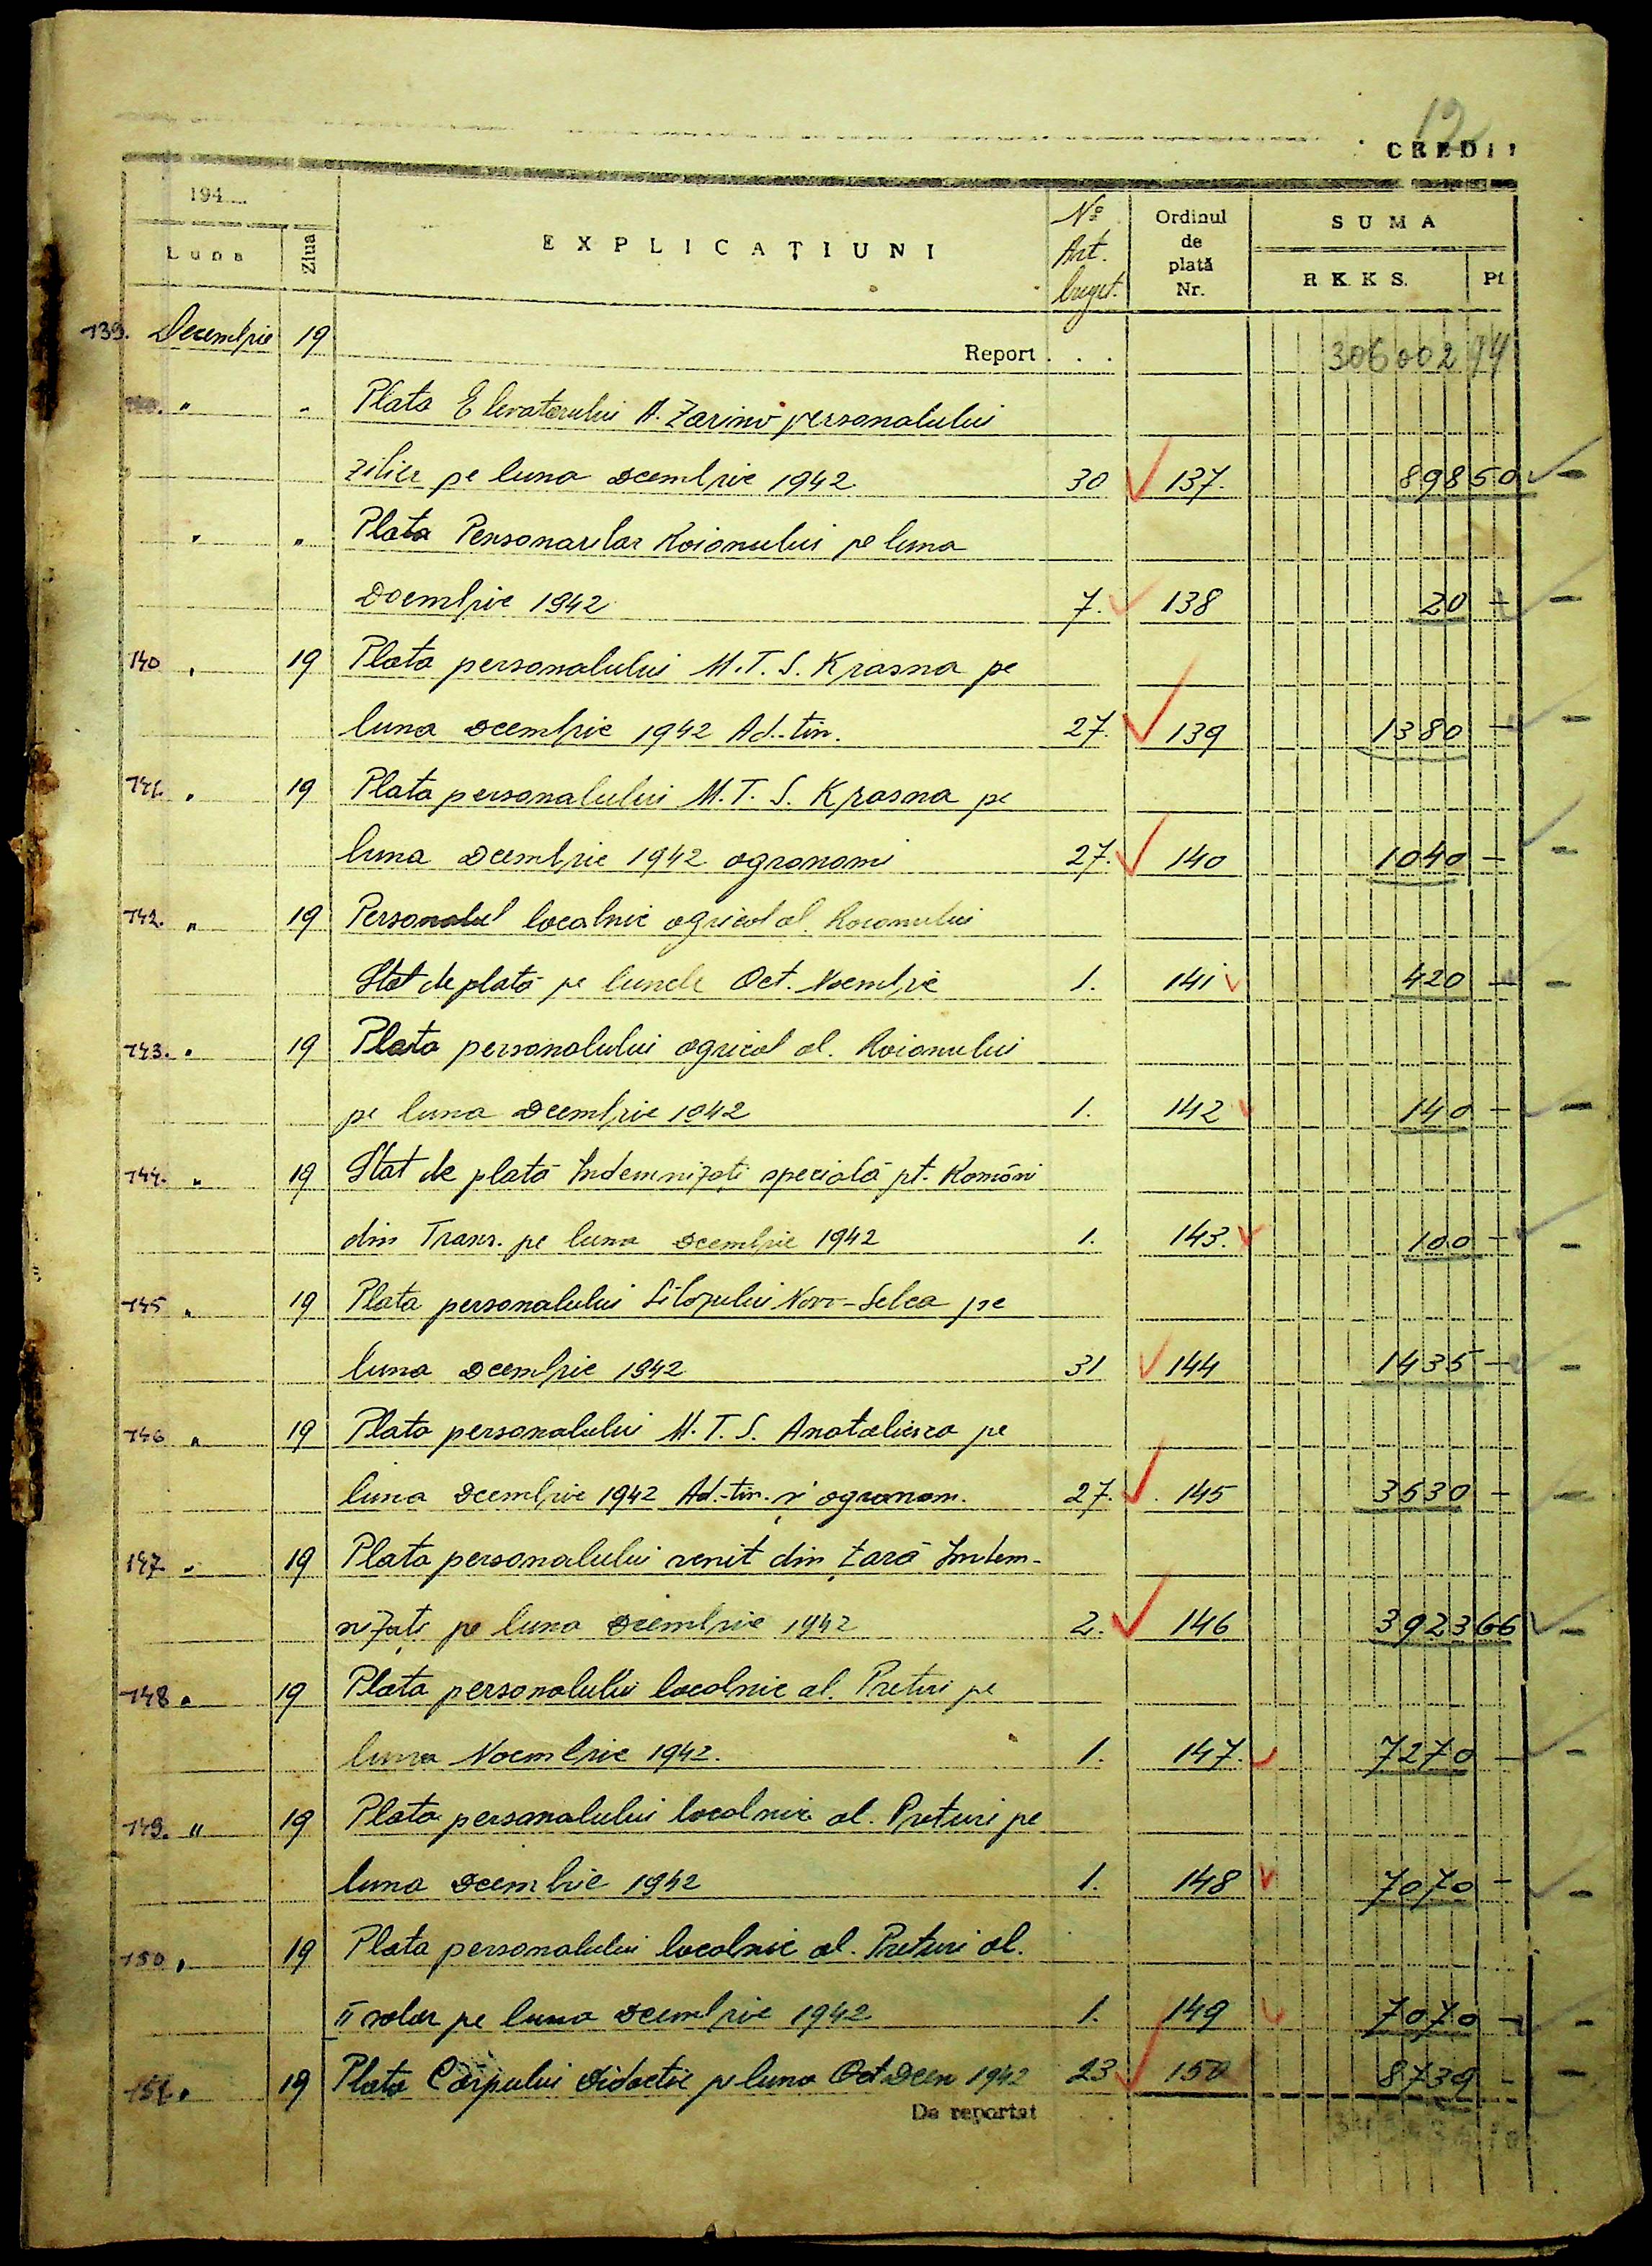 12
CREDIT
194
Luna Ziua EXPLICAȚIUNI No Art. buget. Ordinul de plată Nr. SUMA R K K S. Pf
139. Decembrie 19 Report . . . 306002 94
" " Plata Elevatorului A. Zarino personalului
zilier pe luna Decembrie 1942 30 137. 898 50
" " Plata Pensonarilor Raionului pe luna
Decembrie 1942 7. 138 20 –
140 " 19 Plata personalului M.T.S. Krasna pe
luna Decembrie 1942 Ad-tiv. 27. 139 1380 –
141. " 19 Plata personalului M.T.S. Krasna pe
luna Decembrie 1942 agronomi 27. 140 1040 –
142. " 19 Personalul localnic agricol al. Raionului
Stat de plată pe lunele Oct. Noembrie 1. 141 420 –
143. " 19 Plata personalului agricol al. Raionului
pe luna Decembrie 1942 1. 142 140 –
144. " 19 Stat de plată Indemnizați specială pt. Români
din Trans. pe luna Decembrie 1942 1. 143. 100 –
145 " 19 Plata personalului Silozului Novo-Selca pe
luna Decembrie 1942 31 144 1435 –
146 " 19 Plata personalului M.T.S. Anatolievca pe
luna Decembrie 1942 Ad-tiv. și agronom. 27. 145 3530 –
147. " 19 Plata personalului venit din țară Indem-
nizați pe luna Decembrie 1942 2. 146 3923 66
148 " 19 Plata personalului localnic al. Preturi pe
luna Noembrie 1942. 1. 147. 7270 –
149. " 19 Plata personalului localnic al. Preturi pe
luna Decembrie 1942 1. 148 7070 –
150 " 19 Plata personalului localnic al. Preturi al.
II solar pe luna Decembrie 1942 1. 149 7070 –
151. " 19 Plata Corpului Didactic pe luna Oct Decem 1942 23 150 8739 –
De reportat